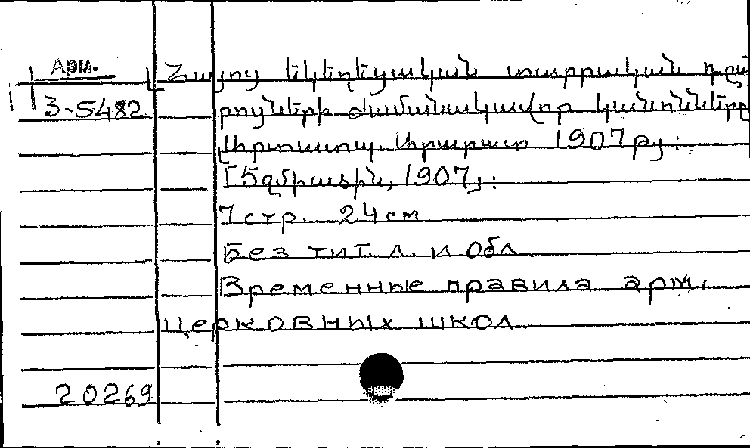 Арм.
Հայոց եկեղեցական տարրական դպ
3-5482
րոցների ժամանակավոր կանոնները
Արտատպ. Արարատ 1907 թ
Էջմիածին, 1907
7 стр. 24 см
Без тит. л. и обл
Временные правила арм.
церковных школ
20269